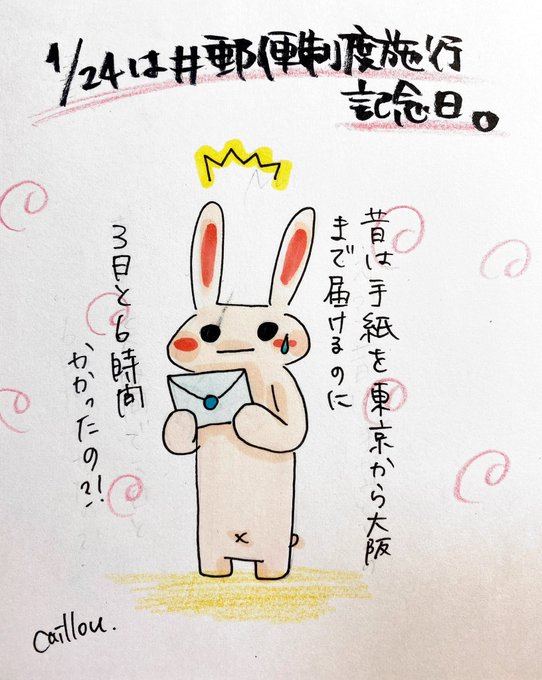 1/24は#郵便制度施行
記念日。
昔は手紙を東京から大阪
まで届けるのに
3日と6時間
かかったの?!
caillou.